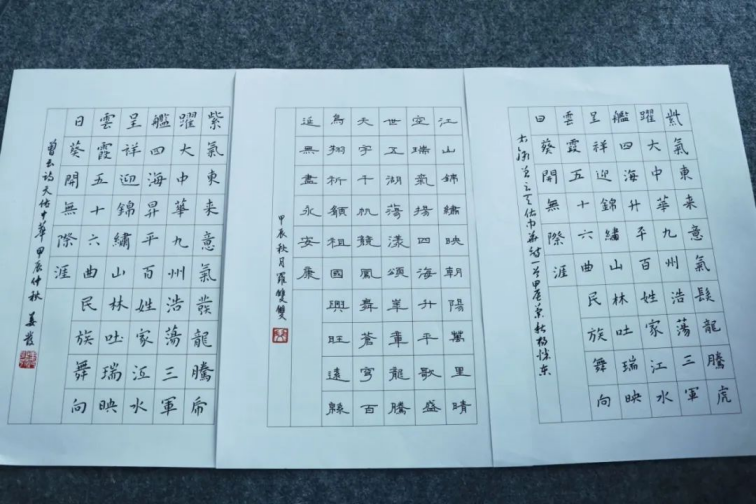 紫氣東来意氣髮龍騰虎
躍大中華九州浩蕩三軍
艦四海升平百姓家江水
呈祥迎錦繡山林吐瑞映
雲霞五十六曲民族舞向
日葵開無際涯
天佑中華詩一首甲辰
江山錦繡映朝陽萬里晴
空瑞氣揚四海升平歌盛
世五湖蕩漾頌華章龍騰
天宇千帆競鳳舞蒼穹百
鳥翔祈願祖國興旺遠綿
延無盡永安康
甲辰秋月羅雙雙
紫氣東来意氣發龍騰虎
躍大中華九州浩蕩三軍
艦四海昇平百姓家江水
呈祥迎錦繡山林吐瑞映
雲霞五十六曲民族舞向
日葵開無際涯
詩天佑中華甲辰仲秋姜